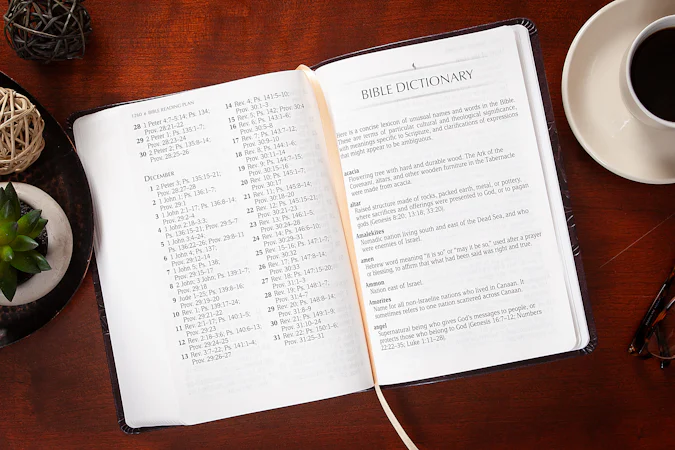 1260 • BIBLE READING PLAN
28 1 Peter 4:7–5:14; Ps. 134;
Prov. 28:21–22
29 2 Peter 1; Ps. 135:1–7;
Prov. 28:23–24
30 2 Peter 2; Ps. 135:8–14;
Prov. 28:25–26
DECEMBER
1 2 Peter 3; Ps. 135:15–21;
Prov. 28:27–28
2 1 John 1; Ps. 136:1–7;
Prov. 29:1
3 1 John 2:1–17; Ps. 136:8–14;
Prov. 29:2–4
4 1 John 2:18–3:3;
Ps. 136:15–21; Prov. 29:5–7
5 1 John 3:4–24;
Ps. 136:22–26; Prov. 29:8–11
6 1 John 4; Ps. 137;
Prov. 29:12–14
7 1 John 5; Ps. 138;
Prov. 29:15–17
8 2 John; 3 John; Ps. 139:1–7;
Prov. 29:18
9 Jude 1–25; Ps. 139:8–16;
Prov. 29:19–20
10 Rev. 1; Ps. 139:17–24;
Prov. 29:21–22
11 Rev. 2:1–17; Ps. 140:1–5;
Prov. 29:23
12 Rev. 2:18–3:6; Ps. 140:6–13;
Prov. 29:24–25
13 Rev. 3:7–22; Ps. 141:1–4;
Prov. 29:26–27
14 Rev. 4; Ps. 141:5–10;
Prov. 30:1–3
15 Rev. 5; Ps. 142; Prov. 30:4
16 Rev. 6; Ps. 143:1–6;
Prov. 30:5–8
17 Rev. 7; Ps. 143:7–12;
Prov. 30:9–10
18 Rev. 8; Ps. 144:1–4;
Prov. 30:11–14
19 Rev. 9; Ps. 144:7–15;
Prov. 30:15–16
20 Rev. 10; Ps. 145:1–7;
Prov. 30:17
21 Rev. 11; Ps. 145:8–14;
Prov. 30:18–20
22 Rev. 12; Ps. 145:15–21;
Prov. 30:21–23
23 Rev. 13; Ps. 146:1–5;
Prov. 30:24–28
24 Rev. 14; Ps. 146:6–10;
Prov. 30:29–31
25 Rev. 15–16; Ps. 147:1–7;
Prov. 30:32
26 Rev. 17; Ps. 147:8–14;
Prov. 30:33
27 Rev. 18; Ps. 147:15–20;
Prov. 31:1–3
28 Rev. 19; Ps. 148:1–7;
Prov. 31:4–7
29 Rev. 20; Ps. 148:8–14;
Prov. 31:8–9
30 Rev. 21; Ps. 149:1–9;
Prov. 31:10–24
31 Rev. 22; Ps. 150:1–6;
Prov. 31:25–31
BIBLE DICTIONARY
Here is a concise lexicon of unusual names and words in the Bible.
These are terms of particular cultural and theological significance,
with meanings specific to Scripture, and clarifications of expressions
that might appear to be ambiguous.
acacia
Flowering tree with hard and durable wood. The Ark of the
Covenant, altars, and other wooden furniture in the Tabernacle
were made from acacia.
altar
Raised structure made of rocks, packed earth, metal, or pottery,
where sacrifices and offerings were presented to God, or to pagan
gods (Genesis 8:20; 13:18; 33:20).
Amalekites
Nomadic nation living south and east of the Dead Sea, and who
were enemies of Israel.
amen
Hebrew word meaning "it is so" or "may it be so," used after a prayer
or blessing, to affirm that what had been said was right and true.
Ammon
Nation east of Israel.
Amorites
Name for all non-Israelite nations who lived in Canaan. It
sometimes refers to one nation scattered across Canaan.
angel
Supernatural being who gives God's messages to people, or
protects those who belong to God (Genesis 16:7–12; Numbers
22:22–35; Luke 1:11–28).